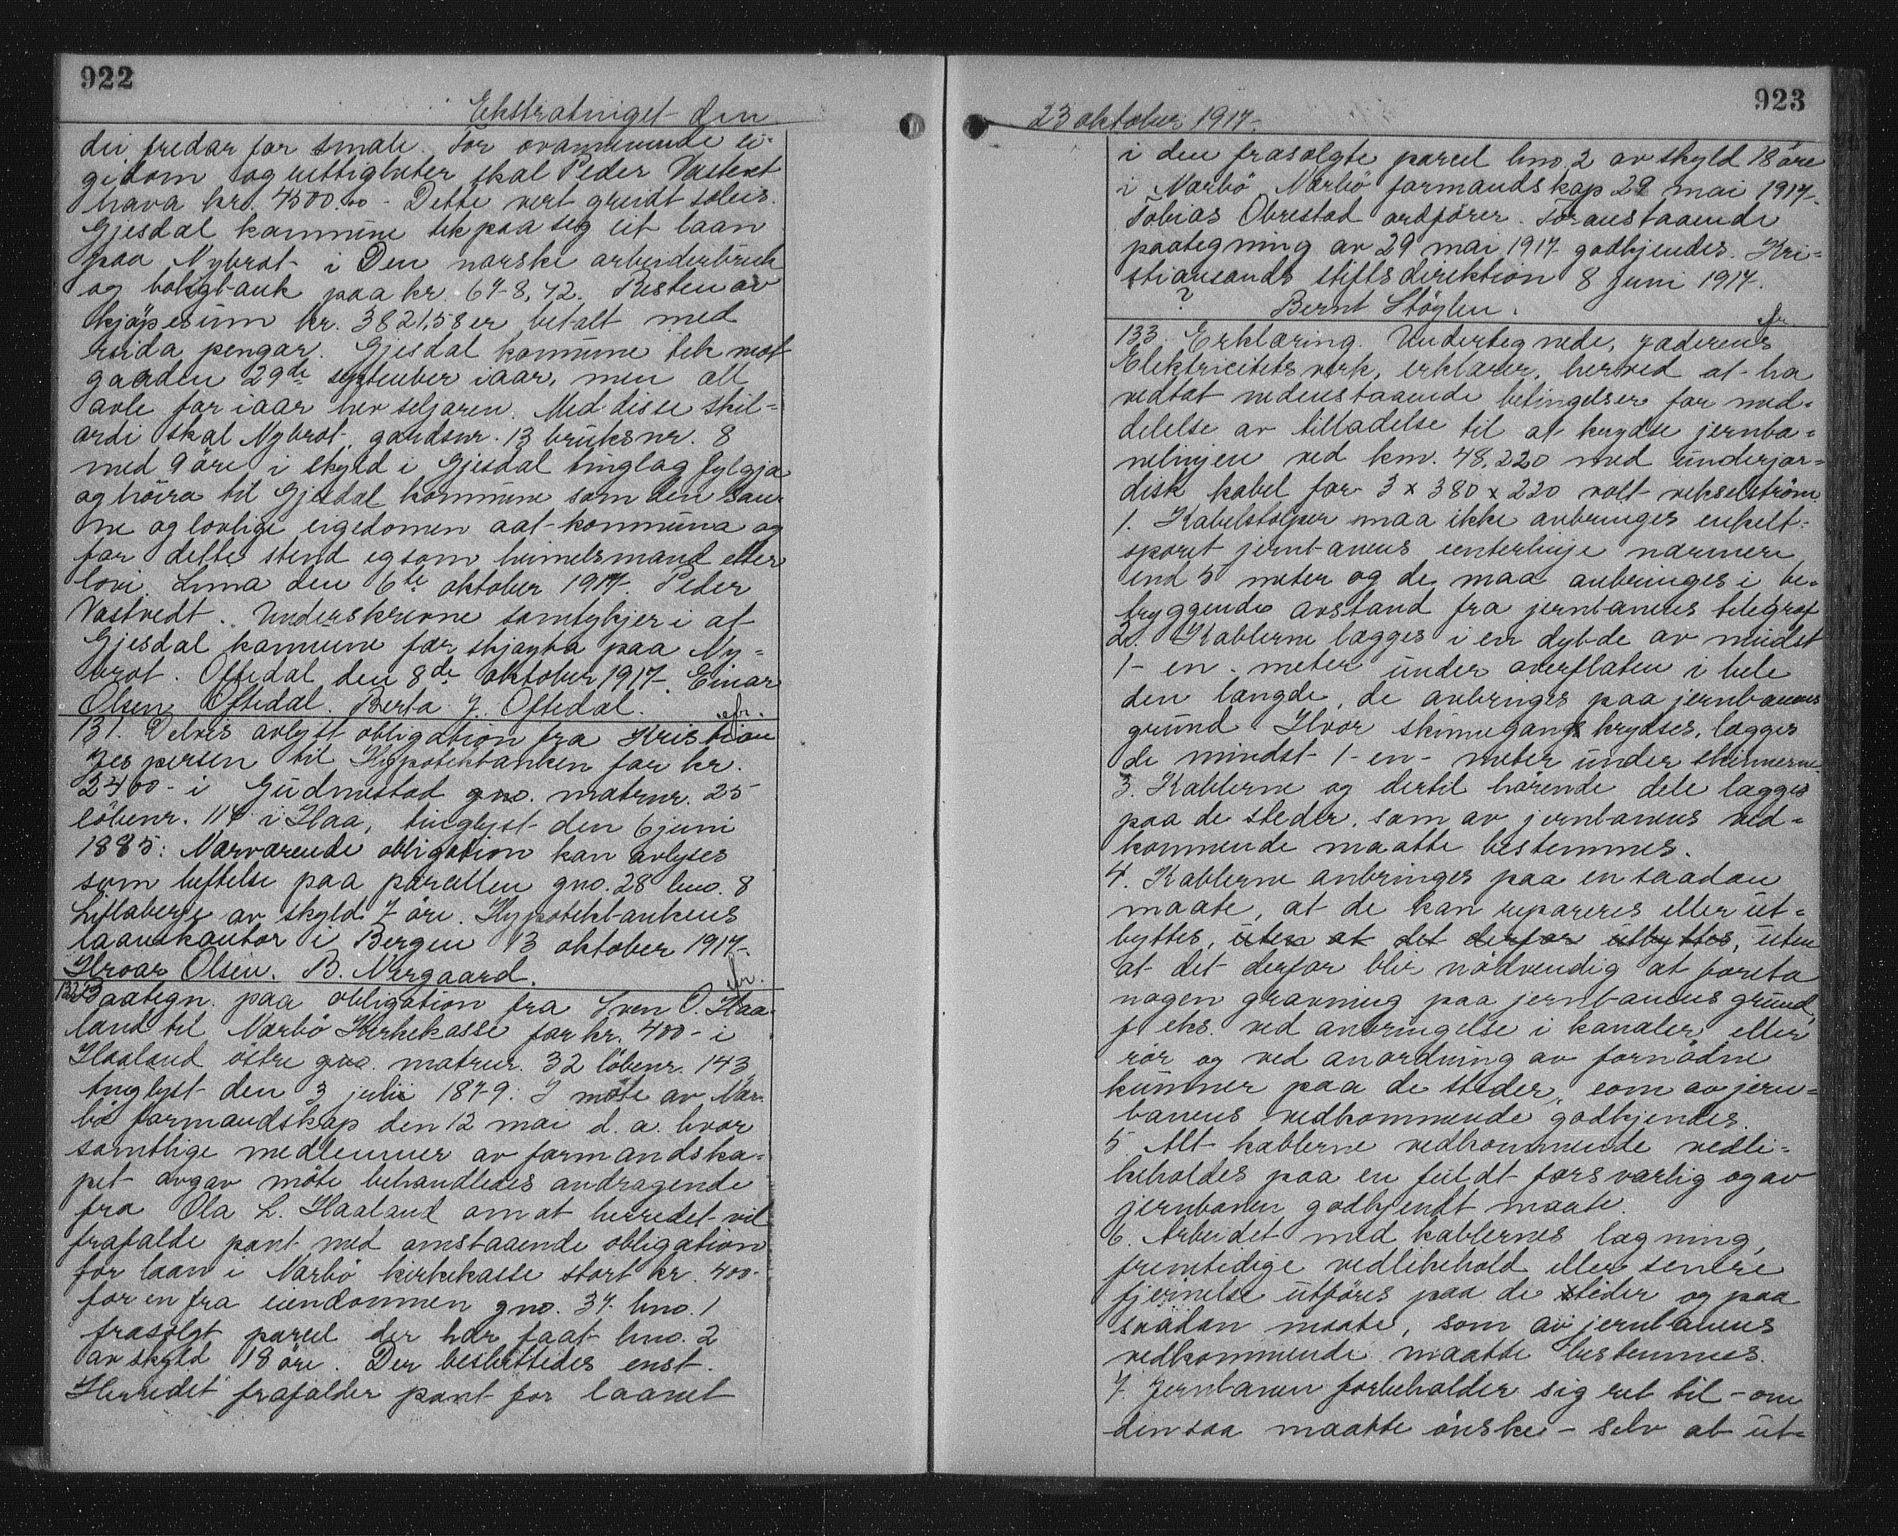 922
Ekstratinget den
dei fredar for smale. For ovannemnde ei-
gedom og luttigheter skal Peder Vastveit
hava kr. 4500.00 - Dette vert greidt soleis.
Gjesdal kommune tek paa seg eit laan
paa Nybrot i Den norske arbeiderbruk
og boligbank paa kr. 678,42. Resten av
kjöpesum kr. 3821,58 er betalt med
reida pengar. Gjesdal kommune tek mot
garden 29de september iaar, men all
avle for iaar hev seljaren. Med disse skil-
ardi skal Nybrot, gardsnr. 13 bruksnr. 8
med 9 öre i skyld i Gjesdal tinglag fylgja
og höira til Gjesdal kommune som den san-
ne og lovlige eigedomen aat kommuna og
for dette stend eg som heimelsmand etter
lovi. Lima den 6te oktober 1917. Peder
Vastvedt. Underskrevne samtykjer i at
Gjesdal kommune fær skjøyta paa Ny-
brot. Oftedal den 8de oktober 1917. Einar
Olsen Oftedal. Berta J. Oftedal.
131. Delvis avlyst obligation fra Kristian
Jespersen til Hypotekbanken for kr.
2400 - i Gudmestad gno. matrnr. 25
löbenr. 114 i Haa, tinglyst den 6 juni
1885: Nærværende obligation kan avlyses
som heftelse paa parcellen gno. 28 bno. 8
Litlaberg av skyld 7 öre. Hypotekbankens
laanekontor i Bergen 13 oktober 1917.
Hroar Olsen. B. Nergaard.
132. Paategn. paa obligation fra Sven O. Haa-
land til Nærbö Kirkekasse for kr. 400 - i
Haaland östre gno. matrnr. 32 löbenr. 143
tinglyst den 3 juli 1879: I möte av Nær-
bö formandskap den 12 mai d. a. hvor
samtlige medlemmer av formandska-
pet avgav möte behandledes andragende
fra Ola L. Haaland om at herredet vil
frafalde pant med omstaaende obligation
for laan i Nærbö kirkekasse stort kr. 400-
for en fra eiendommen gno. 37 bno. 1
frasolgt parcel der har faat bno. 2
av skyld 18 öre. Der besluttedes enst.
Herredet frafalder pant for laanet
923
23 oktober 1917.
i den frasolgte parcel bno 2 av skyld 18 öre
i Nærbö. Nærbö formandskap 29 mai 1917.
Tobias Obrestad ordförer. Foranstaaende
paategning av 29 mai 1917 godkjendes. Kri-
stiansands stiftsdirektion 8 Juni 1917.
? Bernt Støylen.
133. Erklæring. Undertegnede, Jæderens
Elektricitetsverk, erklærer herved at ha
vedtat nedenstaaende betingelser for med-
delelse av tilladelse til at krydse jernba-
nelinjen ved km. 48,220 med underjor-
disk kabel for 3 x 380 x 220 volt vekselström
1. Kabelstolper maa ikke anbringes enkelt-
sporet jernbanens centerlinje nærmere
end 5 meter og de maa anbringes i be-
tryggende avstand fra jernbanens telegraf
2. Kablerne lægges i en dybde av mindst
1 - en - meter under overflaten i hele
den længde, de anbringes paa jernbanens
grund. Hvor skinnegang krydses, lægges
de mindst 1 - en - meter under skinnerne.
3. Kablerne og dertil hörende dele lægges
paa de steder, som av jernbanens ved-
kommende maatte bestemmes.
4. Kablerne anbringes paa en saadan
maate, at de kan repareres eller ut-
byttes, uten at det derfor utbyttes, uten
at det derfor blir nödvendig at foreta
nogen gravning paa jernbanens grund,
f eks. ved anbringelse i kanaler eller
rör og ved anordning av fornödne
kummer paa de steder, som av jern-
banens vedkommende godkjendes.
5 Alt kablerne vedkommende vedli-
keholdes paa en fuldt forsvarlig og av
jernbanen godkjendt maate.
6. Arbeidet med kablernes lægning,
fremtidige vedlikehold eller senere
fjernelse utföres paa de steder og paa
saadan maate, som av jernbanens
vedkommende maatte bestemmes.
7. Jernbanen forbeholder sig ret til - om
den saa maatte önske - selv at ut-